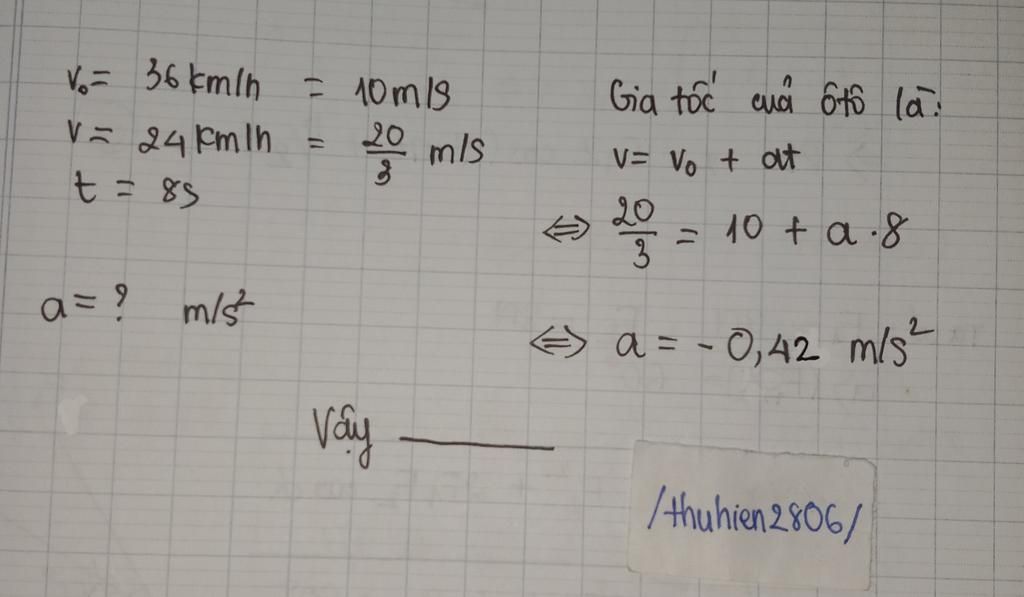 v₀ = 36 km/h = 10 m/s
v = 24 km/h = 20/3 m/s
t = 8s
a = ? m/s²
Gia tốc cuả ôtô là:
v = v₀ + at
⇔ 20/3 = 10 + a . 8
⇔ a = - 0,42 m/s²
Vậy ———
/thuhien2806/